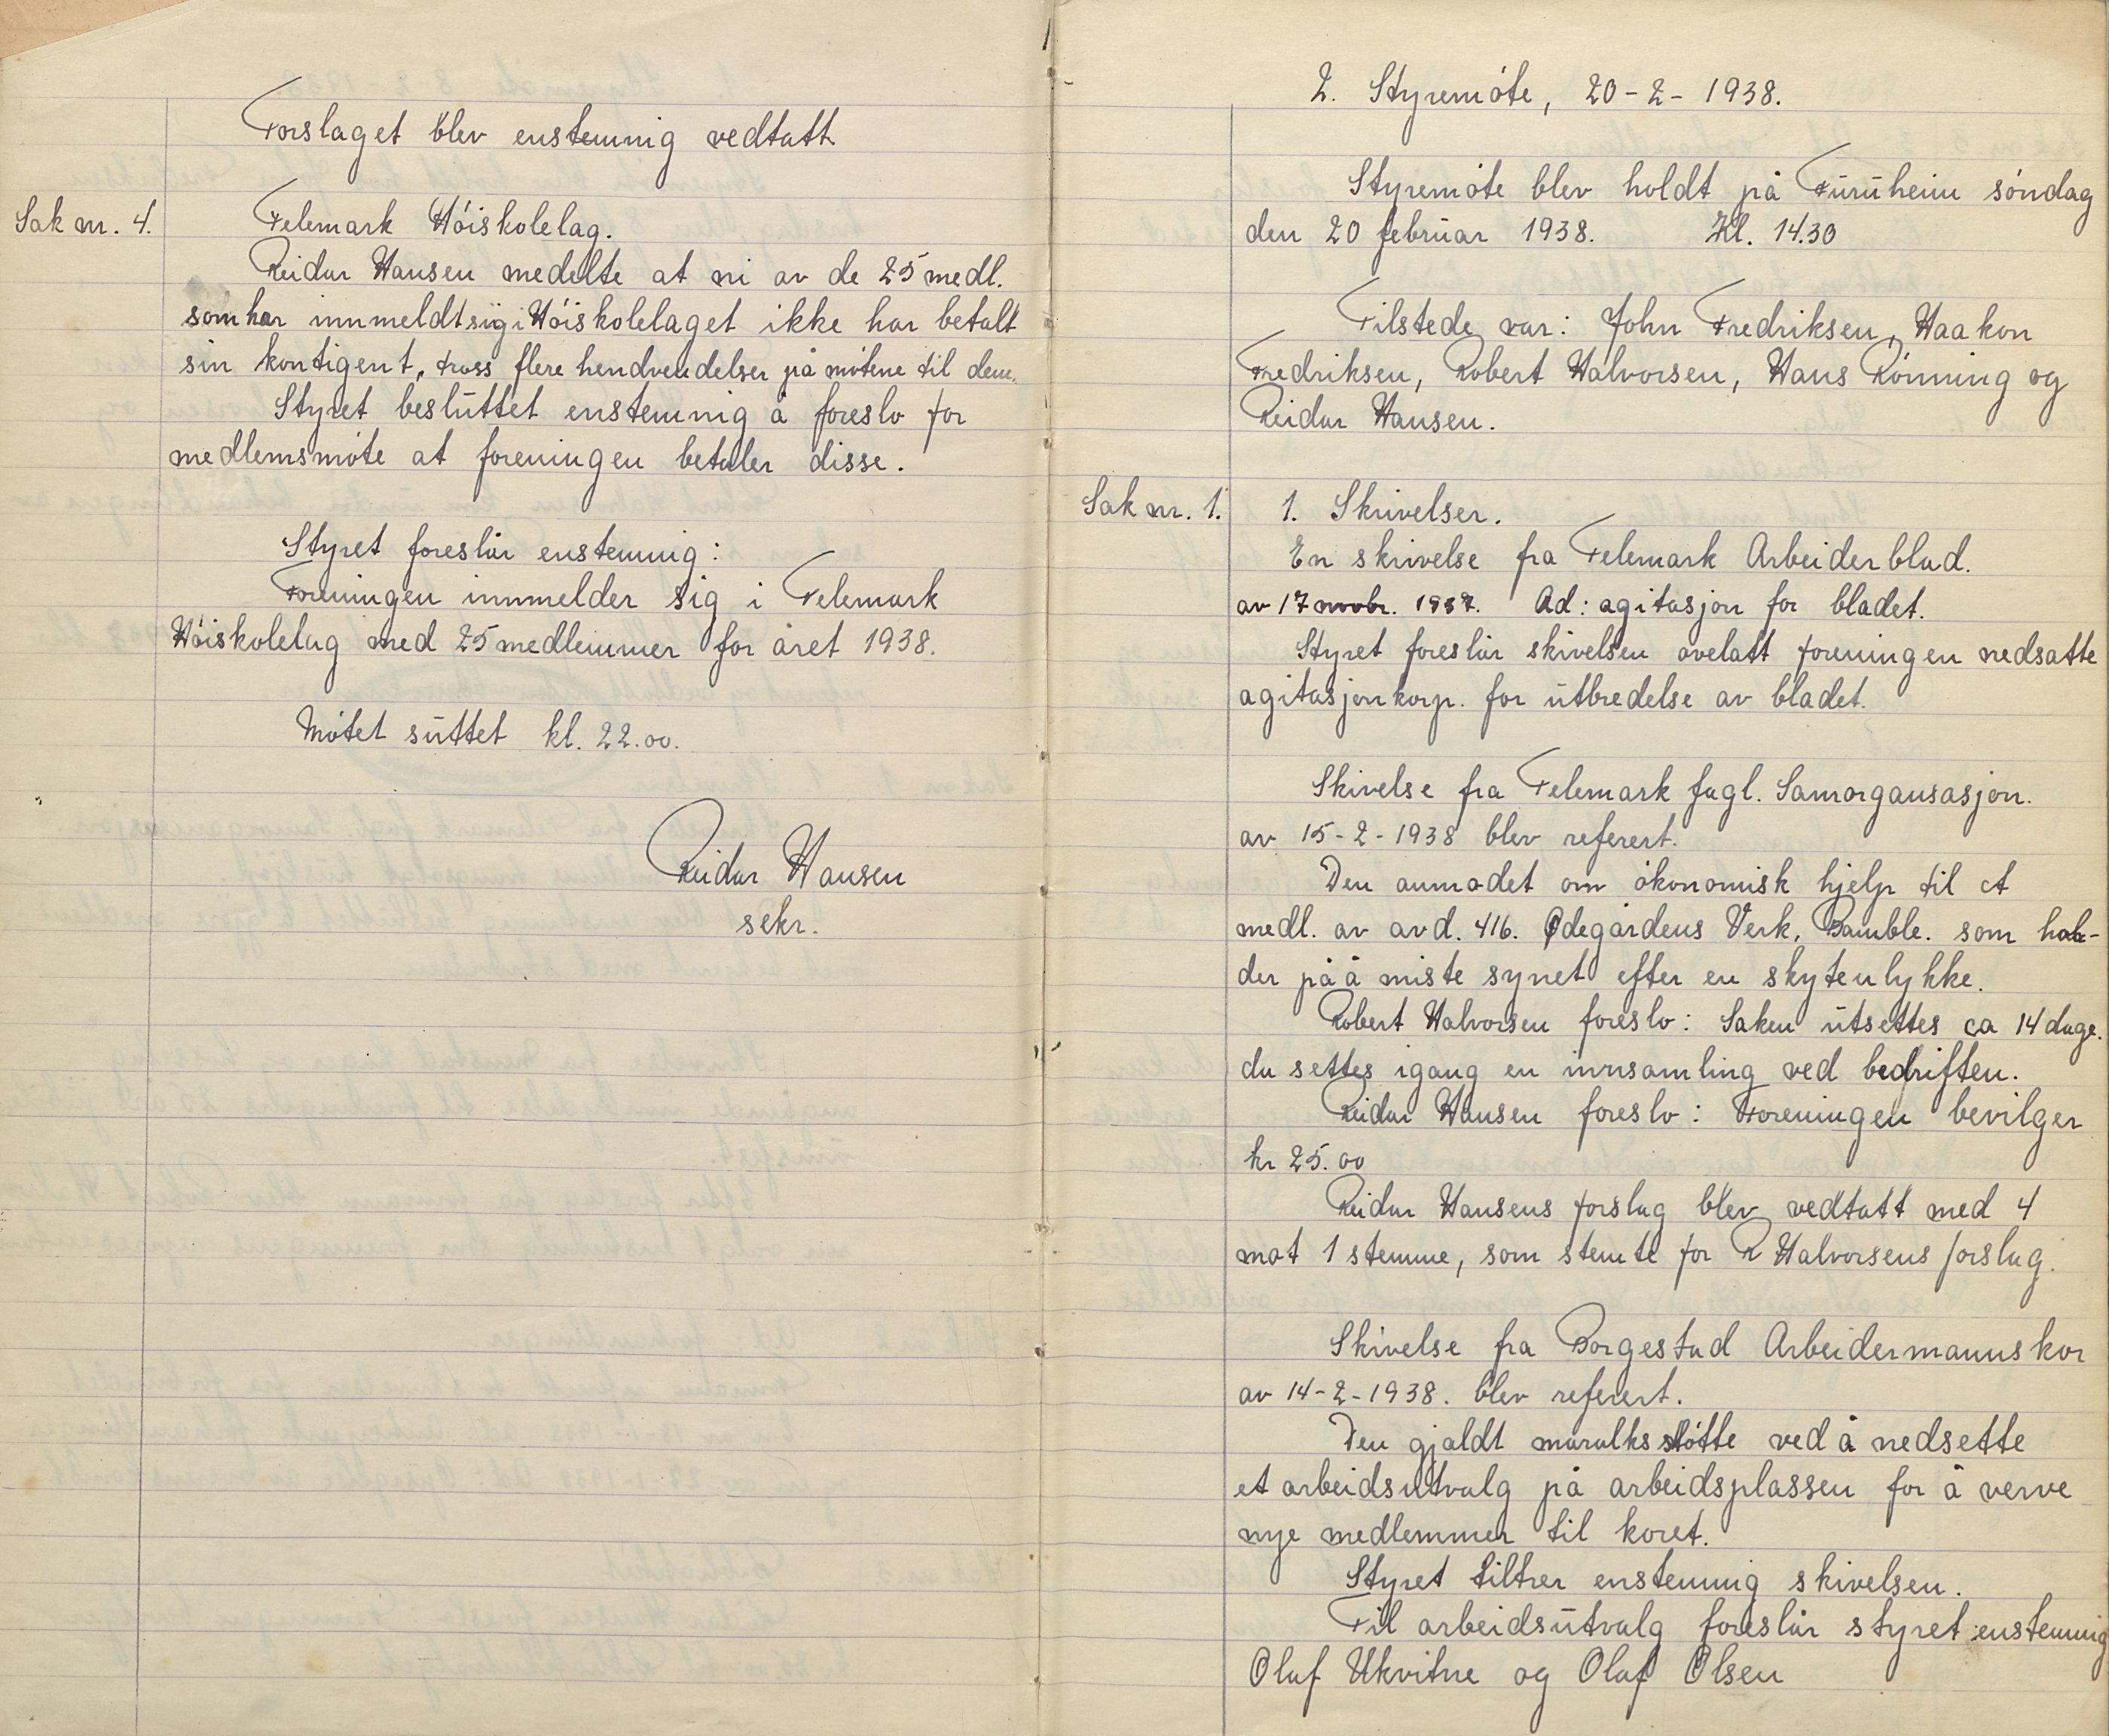 Forslaget blev enstemmig vedtatt
Sak nr. 4. Telemark Høiskolelag.
Reidar Hansen medelte at ni av de 25 medl.
som har innmeldt sig i Høiskolelaget ikke har betalt
sin kontigent, tross flere hendvendelser på møtene til dem.
Styret besluttet enstemmig å foreslo for
medlemsmøte at foreningen betaler disse.
Styret foreslår enstemmig:
Foreningen innmelder sig i Telemark
Høiskolelag med 25 medlemmer for året 1938.
Møtet suttet kl. 22.00.
Reidar Hansen
sekr.
2. Styremøte, 20-2-1938.
Styremøte blev holdt på Furuheim søndag
den 20 februar 1938. Kl. 14.30
Tilstede var: John Fredriksen, Haakon
Fredriksen, Robert Halvorsen, Hans Rønning og
Reidar Hansen.
Sak nr. 1. 1. Skrivelser.
En skrivelse fra Telemark Arbeiderblad.
av 17 novbr. 1937. Ad: agitasjon for bladet.
Styret foreslår skivelsen ovelatt foreningen nedsatte
agitasjonkorp. for utbredelse av bladet.
Skivelse fra Telemark fagl. Samorgansasjon.
av 15-2-1938 blev referert.
Den anmodet om økonomisk hjelp til et
medl. av avd. 416. Ødegårdens Verk, Bamble. som hol-
der på å miste synet efter en skyteulykke.
Robert Halvorsen foreslo: Saken utsettes ca 14 dage.
da settes igang en innsamling ved bedriften.
Reidar Hansen foreslo: Foreningen bevilger
kr 25.00
Reidar Hansens forslag blev vedtatt med 4
mot 1 stemme, som stemte for R Halvorsens forslag.
Skivelse fra Borgestad Arbeidermannskor
av 14-2-1938. blev referert.
Den gjaldt moralks støtte ved å nedsette
et arbeidsutvalg på arbeidsplassen for å verve
nye medlemmer til koret.
Styret tiltrer enstemmig skivelsen.
Til arbeidsutvalg foreslår styret enstemmig
Olaf Ukvitne og Olaf Olsen